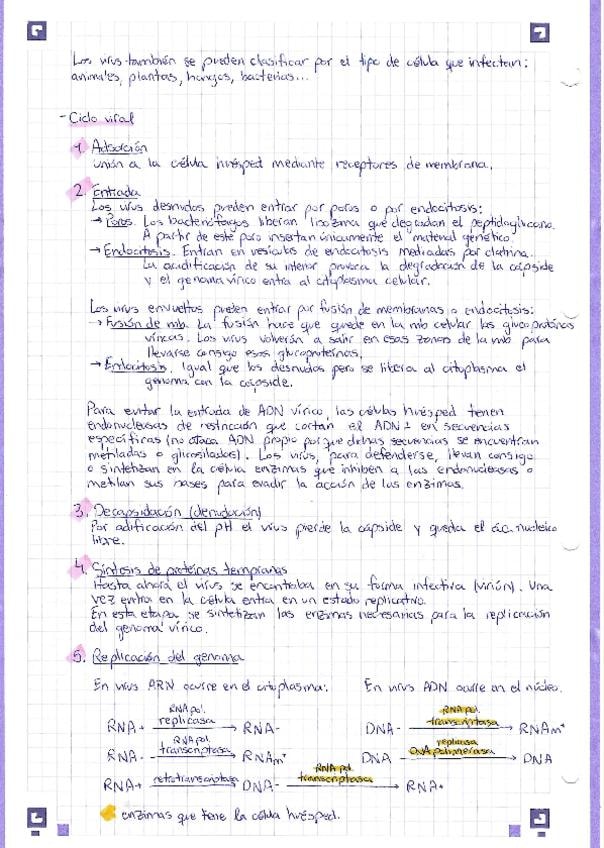 Los virus también se pueden clasificar por el tipo de célula que infectan:
animales, plantas, hongos, bacterias...
- Ciclo viral
1. Adsorción
Unión a la célula huésped mediante receptores de membrana.
2. Entrada
Los virus desnudos pueden entrar por poros o por endocitosis:
→ Poros. Los bacteriófagos liberan lisozima que degradan el peptidoglucano.
A partir de este poro insertan únicamente el material genético.
→ Endocitosis. Entran en vesículas de endocitosis mediadas por clatrina.
La acidificación de su interior provoca la degradación de la cápside
y el genoma vírico entra al citoplasma celular.
Los virus envueltos pueden entrar por fusión de membranas o endocitosis:
→ Fusión de mb. La fusión hace que quede en la mb celular las glucoproteínas
víricas. Los virus volverán a salir en esas zonas de la mb para
llevarse consigo esas glucoproteínas.
→ Endocitosis. Igual que los desnudos pero se libera al citoplasma el
genoma con la cápside.
Para evitar la entrada de ADN vírico, las células huésped tienen
endonucleasas de restricción que cortan el ADN± en secuencias
específicas (no ataca ADN propio porque dichas secuencias se encuentran
metiladas o glucosiladas). Los virus, para defenderse, llevan consigo
o sintetizan en la célula enzimas que inhiben a las endonucleasas o
metilan sus bases para evadir la acción de las enzimas.
3. Decapsidación (denudación)
Por acidificación del pH el virus pierde la cápside y queda el ác. nucleico
libre.
4. Síntesis de proteínas tempranas
Hasta ahora el virus se encontraba en su forma infectiva (virión). Una
vez entra en la célula entra en un estado replicativo.
En esta etapa se sintetizan las enzimas necesarias para la replicación
del genoma vírico.
5. Replicación del genoma
En virus ARN ocurre en el citoplasma: En virus ADN ocurre en el núcleo.
RNA+ RNA pol. replicasa → RNA- DNA- RNA pol. transcriptasa → RNAm+
RNA- RNA pol. transcriptasa → RNAm+ DNA replicasa DNA polimerasa → DNA
RNA+ retrotranscriptasa → DNA- RNA pol. transcriptasa → RNA+
enzimas que tiene la célula huésped.